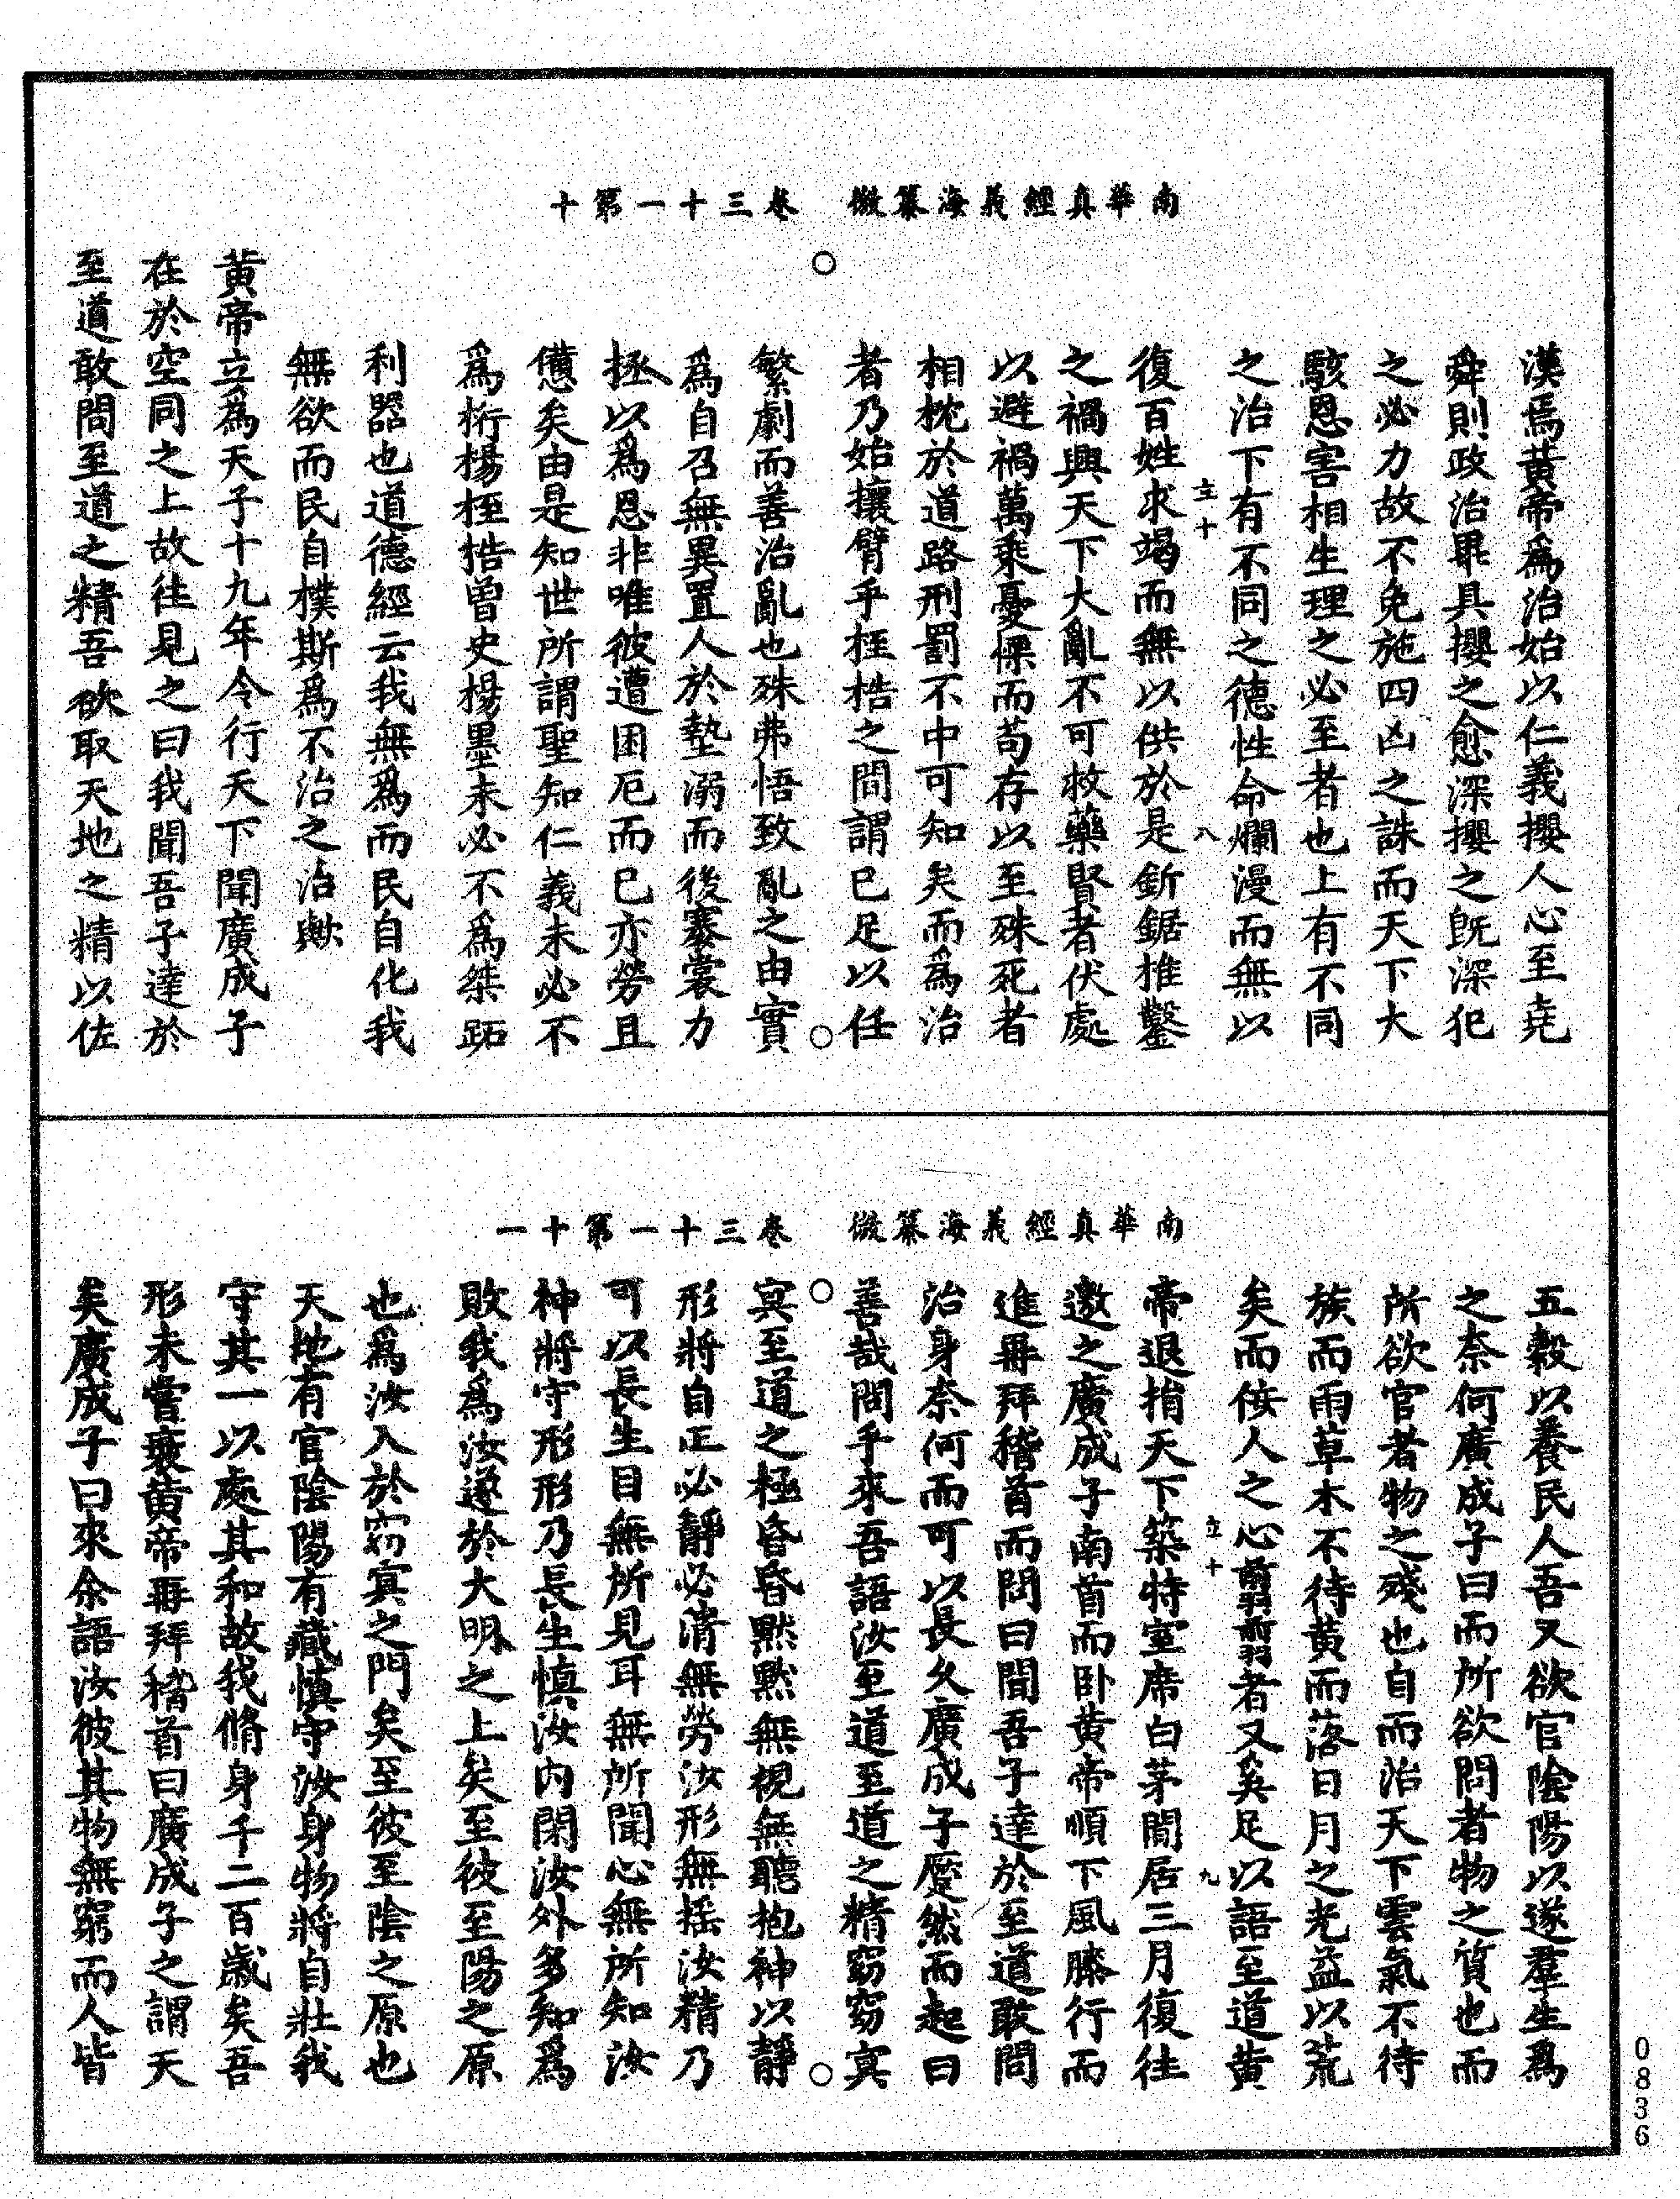 南華真經義海纂微 卷三十一第十
漢焉黃帝爲治始以仁義攖人心至堯
舜則政治畢具攖之愈深攖之既深犯
之必力故不免施四凶之誅而天下大
駭恩害相生理之必至者也上有不同
之治下有不同之德性命爛漫而無以
立十 八
復百姓求竭而無以供於是釿鋸推鑿
之禍興天下大亂不可救藥賢者伏處
以避禍萬乘憂慄而苟存以至殊死者
相枕於道路刑罰不中可知矣而爲治
者乃始攘臂乎桎梏之間謂已足以任
繁劇而善治亂也殊弗悟致亂之由實
爲自召無異置人於墊溺而後褰裳力
拯以爲恩非唯彼遭困厄而已亦勞且
憊矣由是知世所謂聖知仁義未必不
爲桁楊桎梏曾史楊墨未必不爲桀跖
利器也道德經云我無爲而民自化我
無欲而民自樸斯爲不治之治歟
黃帝立爲天子十九年令行天下聞廣成子
在於空同之上故往見之曰我聞吾子達於
至道敢問至道之精吾欲取天地之精以佐
南華真經義海纂微 卷三十一第十一
五穀以養民人吾又欲官陰陽以遂羣生爲
之奈何廣成子曰而所欲問者物之質也而
所欲官者物之殘也自而治天下雲氣不待
族而雨草木不待黃而落日月之光益以荒
矣而佞人之心翦翦者又奚足以語至道黃
立十 九
帝退捐天下築特室席白茅閒居三月復往
邀之廣成子南首而卧黃帝順下風膝行而
進再拜稽首而問曰聞吾子達於至道敢問
治身奈何而可以長久廣成子蹷然而起曰
善哉問乎來吾語汝至道至道之精窈窈冥
冥至道之極昏昏默默無視無聽抱神以靜
形將自正必靜必清無勞汝形無搖汝精乃
可以長生目無所見耳無所聞心無所知汝
神將守形形乃長生慎汝內閉汝外多知爲
敗我爲汝遂於大明之上矣至彼至陽之原
也爲汝入於窈冥之門矣至彼至陰之原也
天地有官陰陽有藏慎守汝身物將自壯我
守其一以處其和故我脩身千二百歲矣吾
形未嘗衰黃帝再拜稽首曰廣成子之謂天
矣廣成子曰來余語汝彼其物無窮而人皆
0836